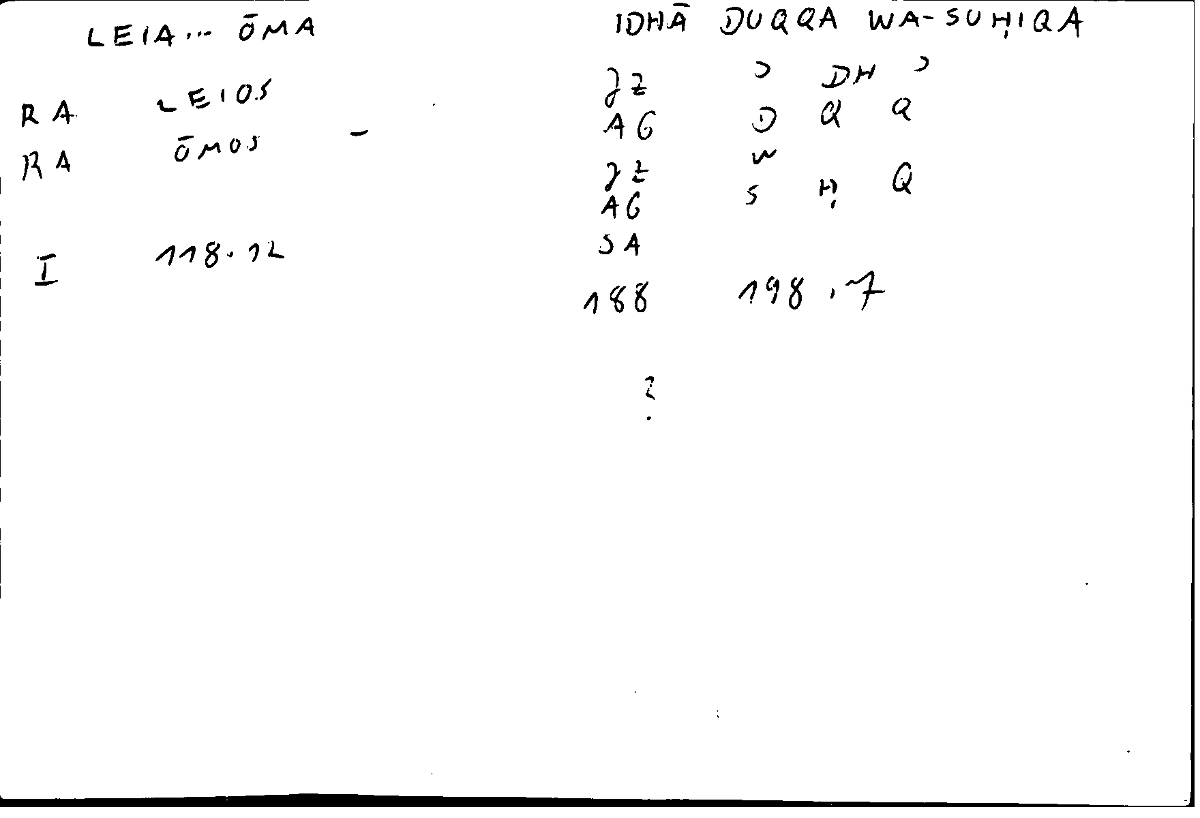 LEIA... ŌMA IDHĀ DUQQA WA-SUḤIQA
RA LEIOS
RA ŌMOS -
I 118.12
JZ ʾ DH ʾ
AG D Q Q
JZ W
AG S Ḥ Q
SA
188 198.7
?